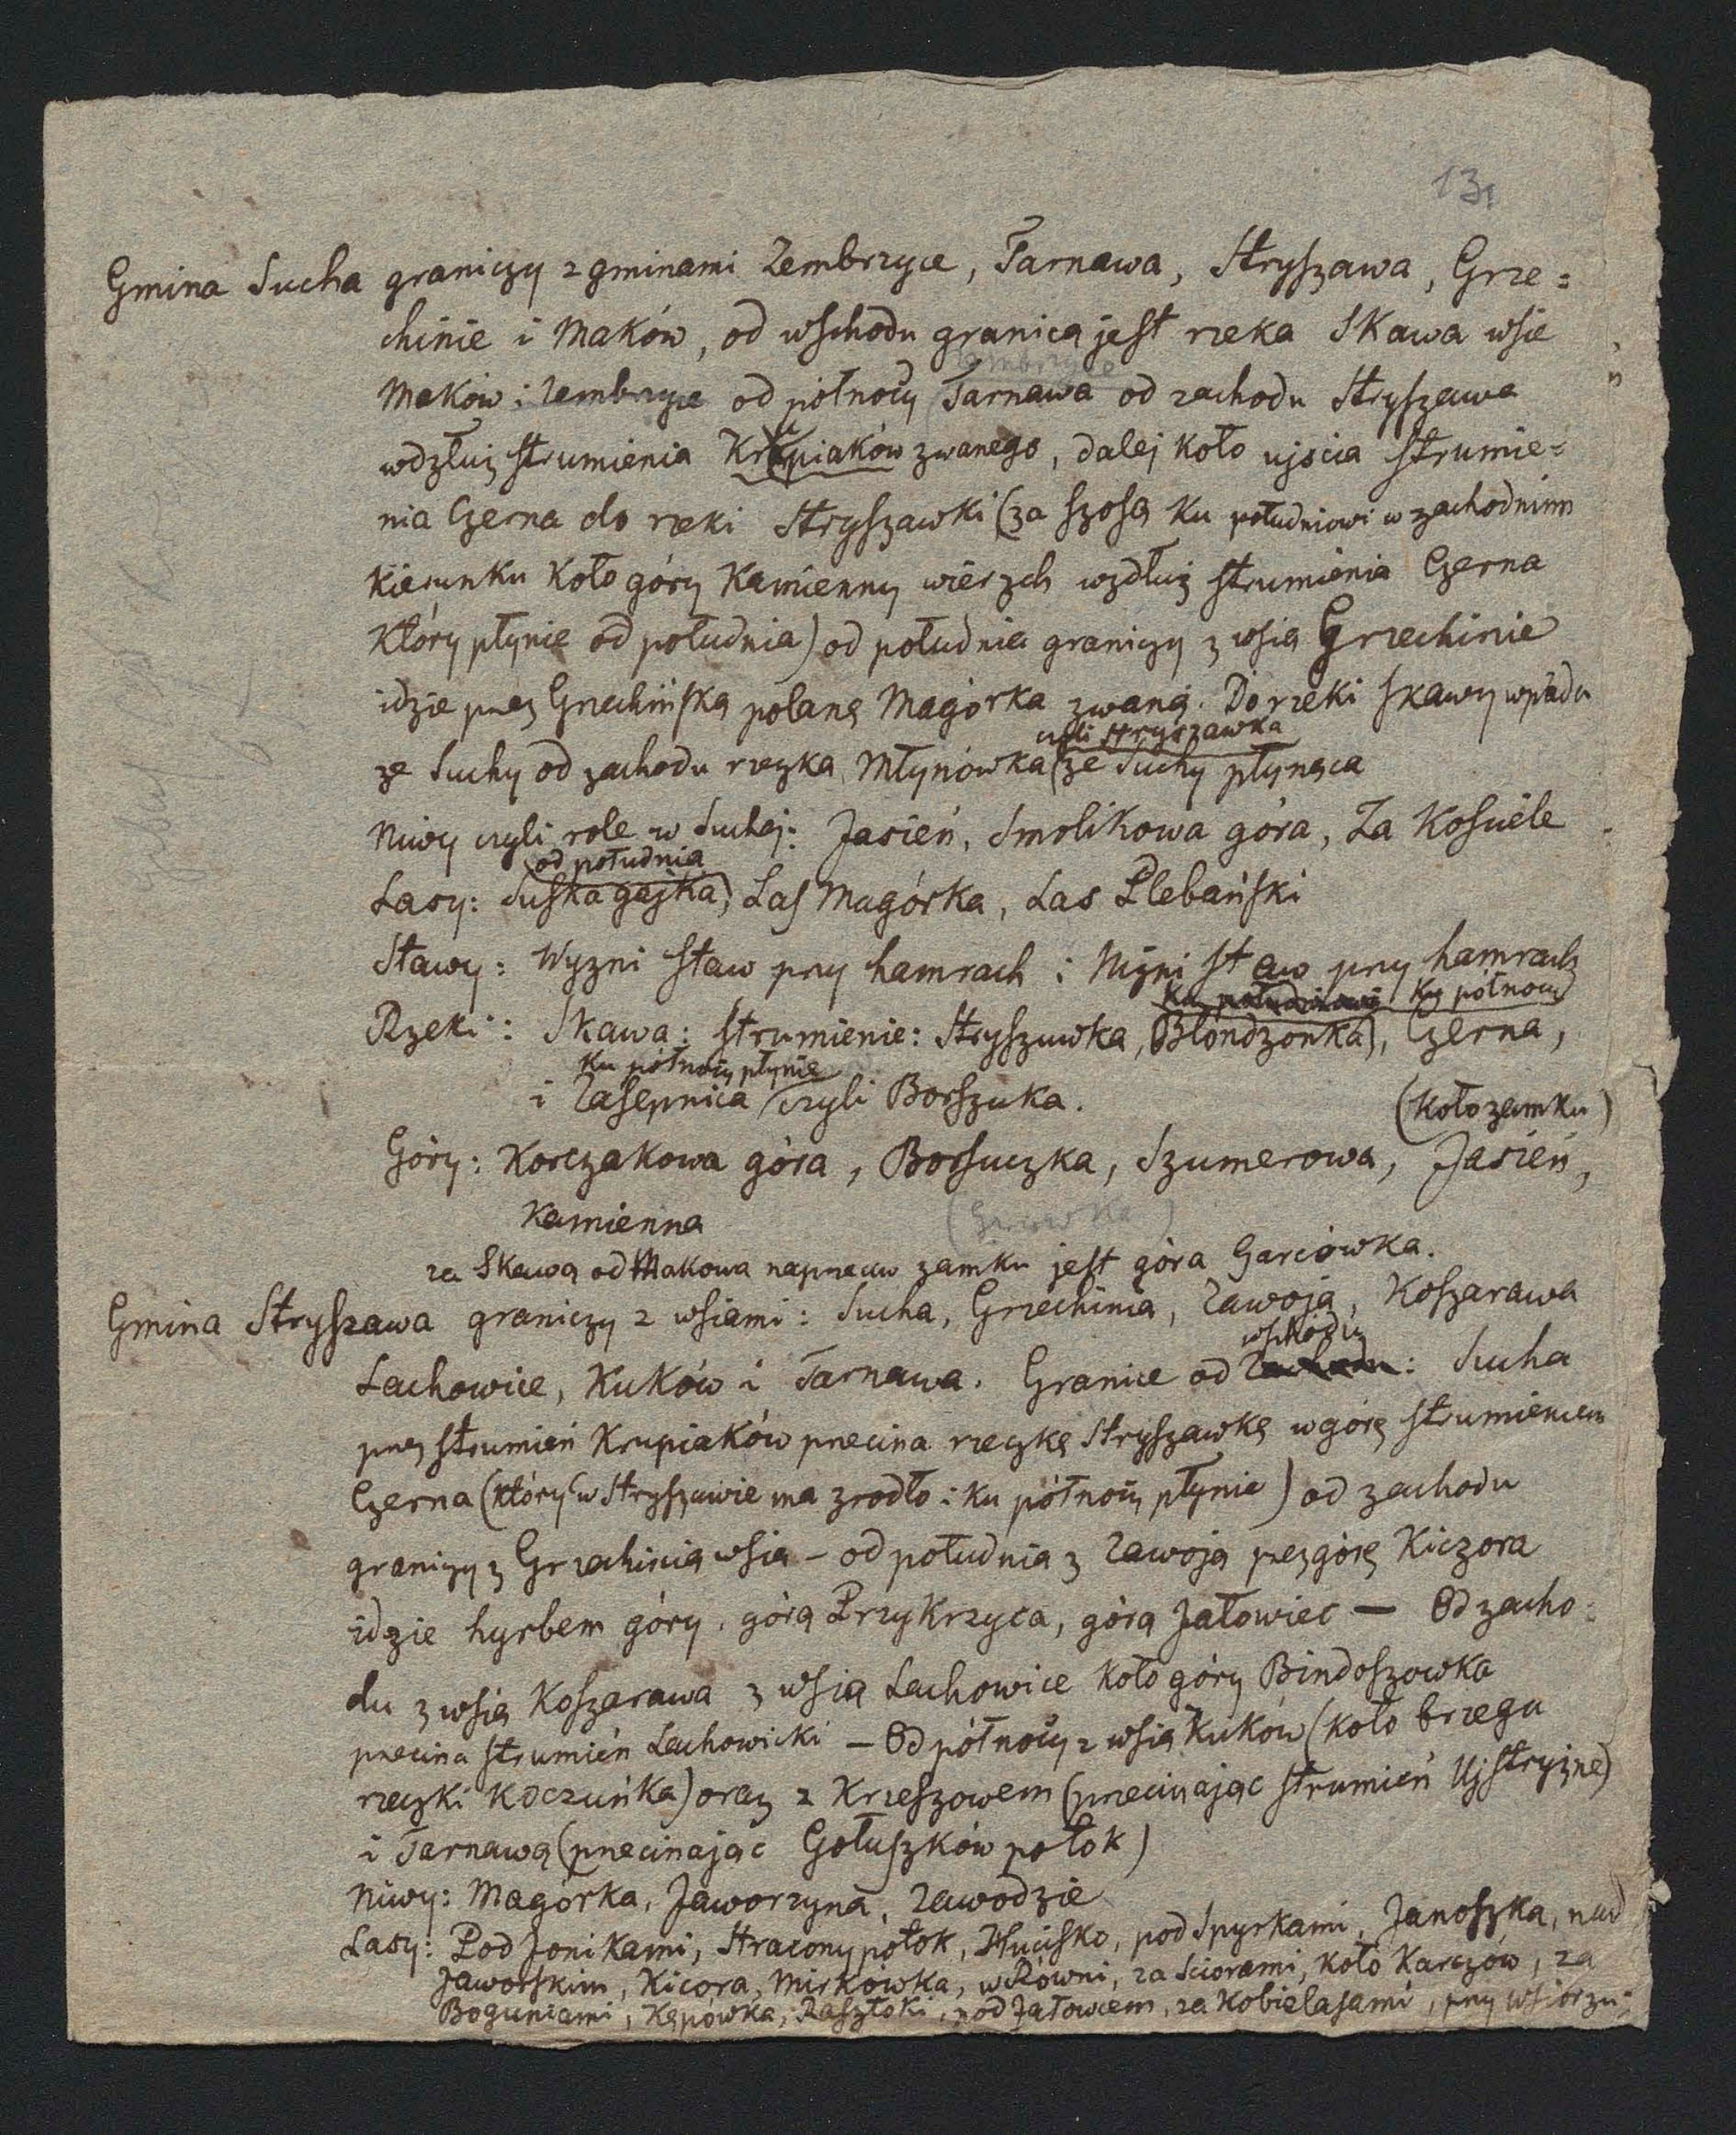 131
Gmina Sucha graniczy z gminami Zembrzyce, Tarnawa, Stryszawa, Grze=
chinie i Maków, od wschodu granicą jest rzeka Skawa wsie
Maków i Zembrzyce od północy Tarnawa od zachodu Stryszawa
wdzłuż strumienia Krupiaków zwanego, dalej koło ujścia strumie=
nia Czerna do rzeki Stryszawki (za szosą ku południowi w zachodnim
kierunku koło góry Kamienny wierzch wzdłuż strumienia Czerna
który płynie od południa) od południa graniczy z wsią Grzechinie
idzie przez Grzechińską polanę Magórka zwaną. Do rzeki Skawy wpada
czyli Stryszawka
ze Suchy od zachodu rzeczka Młynówka (ze Suchy płynąca
Niwy czyli role w Suchej: Jasień, Smolikowa góra, Za Kościele
od południa
Lasy: Suska gajka, Las Magórka, Las Plebański
Stawy: Wyzni staw przy hamrach i Niżni staw przy hamrach
ku południowi ku północy
Rzeki: Skawa: strumienie: Stryszawka, Błondzonka), Czerna,
ku północy płynie
i Zasepnica czyli Borszuka.
(koło zamku)
Góry: Korczakowa góra, Borsuczka, Szumerowa, Jasień,
Kamienna
za Skawą od Makowa naprzeciw zamku jest góra Garciówka.
Gmina Stryszawa graniczy z wsiami: Sucha, Grzechinia, Zawoja, Koszarawa
wschodu
Lachowice, Kuków i Tarnawa. Granice od zachodu: Sucha
przez strumień Krupiaków przecina rzeczkę Stryszawkę w górę strumieniem
Czerna (który w Stryszawie ma zrodło i ku północy płynie) od zachodu
graniczy z Grzechinią wsią – od południa z Zawoją przez górę Kiczora
idzie hyrbem góry. górą Przykrzyca, górą Jałowiec — Od zacho=
du z wsią Koszarawa z wsią Lachowice koło góry Bindoszowka
przecina strumień Lachowicki – Od północy z wsią Kuków (koło brzegu
rzeczki Koczuńka) oraz z Krzeszowem (przecinając strumień Ujstryżne)
i Tarnawą (przecinając Gołuszków potok)
Niwy: Magórka, Jaworzyna, Zawodzie
Lasy: Pod Jonikami, Stracony potok, Hucisko, pod Spyrkami, Janoszka, nad
Jaworskim, Kicora, Mirkówka, w Równi, za Sciorami, koło Karczów, za
Boguniami, Kąpówka, Rasztoki, pod Jałowcem, za Kobielasami, przy